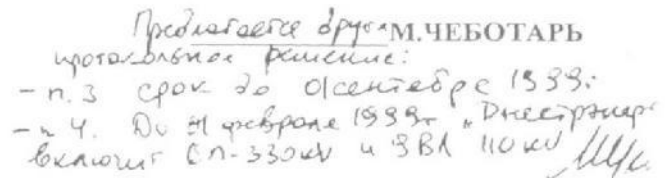 Предлагается другое М.ЧЕБОТАРЬ
протокольное решение:
- п. 3 срок до сентября 1999г.
- п 4. До февраля 1999г. "Днестрэнерго
включит СП-330кV и ЗВЛ 110 кV